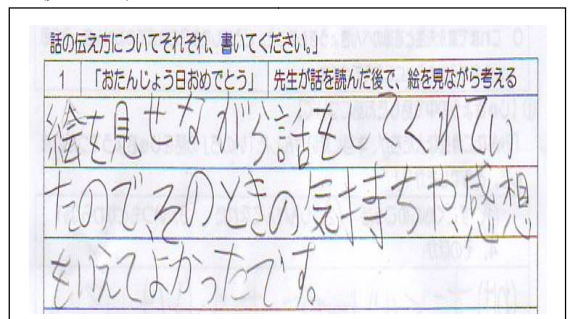 話の伝え方についてそれぞれ、書いてください。」
1 「おたんじょう日おめでとう」 先生が話を読んだ後で、絵を見ながら考える
絵を見せながら話もしてくれてい
たので、そのときの気持ちや感想
もいえてよかったです。